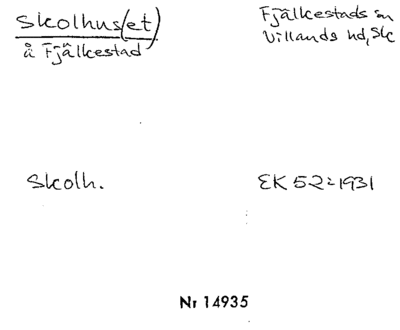 Skolhus(et)
å Fjälkestad
Fjälkestads sn
Villands hd, Sk
Skolh.
EK 52:1931
Nr 14935